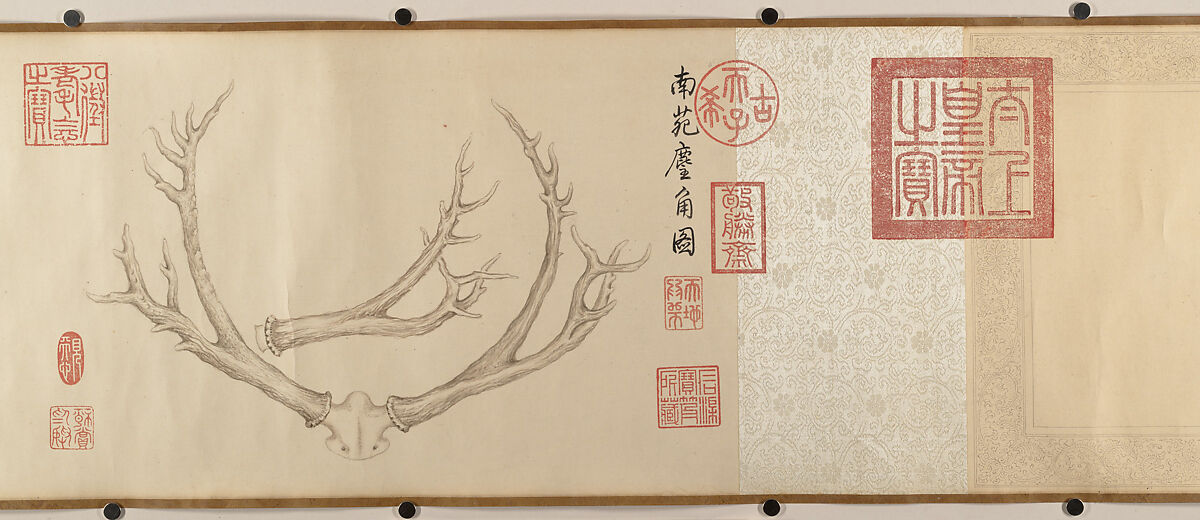 太上皇帝之寶
古希天子
敬勝齋
南苑麈角圖
石渠寶笈所藏
八徵耄念之寶